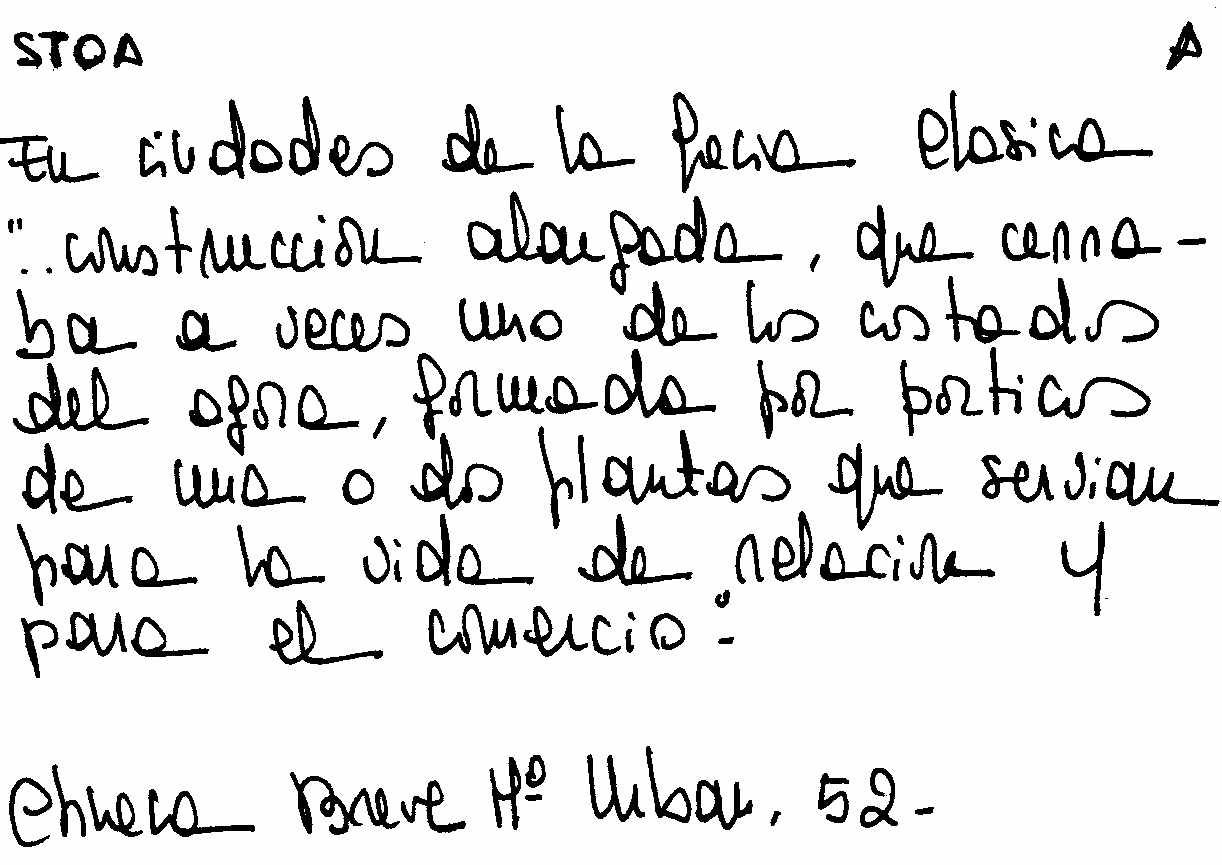 STOA A
En ciudades de la Grecia Clasica
"..construcción alargada, que cerra-
ba a veces uno de los costados
del agora, formada por porticos
de una o dos plantas que servian
para la vida de relación y
para el comercio".-
Chueca Breve Hº Urban. 52-